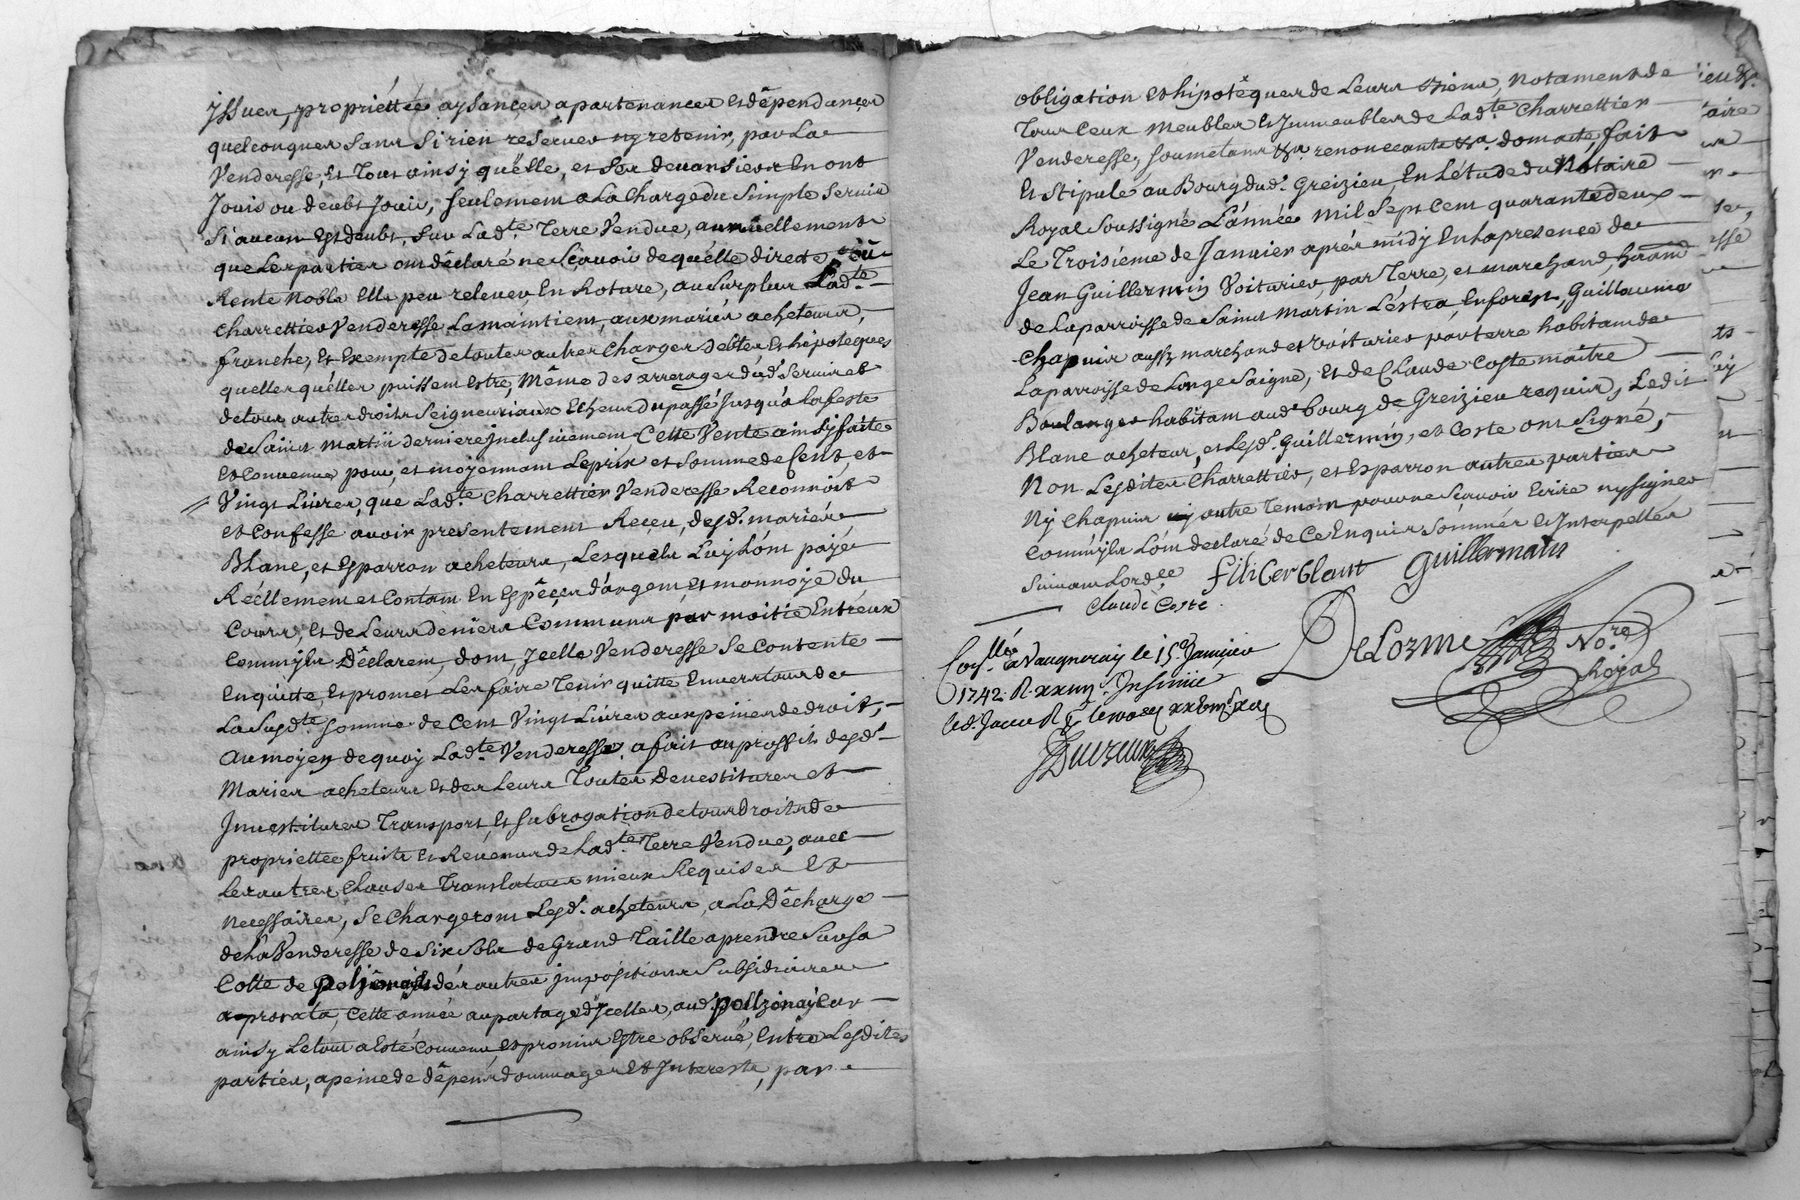 Issues, propriéttée aysances apartenances et dêpendances
quelconques sans si rien reserver ny retenir, par La
Venderesse, et Tout ainsy qu'elle, et ses devansiers En ont
Jouis ou deubt Jouir, seulement a La Charge du simple servis
si aucun Est deubt, sur Lad.te Terre Vendue, annuellement
que Les parties ont déclaré ne sçavoir de quélle directe, où
Rente Noble Elle peu relever En Roture, au surplus Lad.te
Charrettier Venderesse La maintient, auxmariés acheteurs,
franche, Et Exempte de toutes autres Charges debtes Et hipoteques
quelles quélles puissent Estre, même des arrerages dud.t servis et
de tous autres droits seigneuriaux Echeus du passé Jusqu'à la feste
de saint Martin derniere inclusivement Cette Vente ainsy faite
et Convenue, pour, et moyennant Le prix et somme de Cent, et
Vingt Livres, que Lad.te Charrettier Venderesse Reconnoit
et Confesse avoir presentement Reçeu, desd.t mariés
Blanc, et Esparron acheteurs, Lesquels Luy L'ônt payée
Réellement et Contant En Espêces d'argent, et monnoye du
Cours, Et de Leurs deniers Communs par moitié Entreux
Comm'ils Dêclarent, dont, Jcelle Venderesse se Contente
Enquitte, Et promet Les faire Tenir quitte Envers tous de
La susd.te somme de Cent Vingt Livres aux peines de droit,
Au moyen de quoy Lad.te Venderesse a fait au proffit desd.t
Mariés acheteurs Et des Leurs Toutes Devestitures et
Jnvestitures Transport, Et subrogation de tous Droits de
propriettée fruits Et Revenus de Lad.te Terre Vendue, avec
Les autres Clauses Translatives mieux Requises Et
Necessaires, se Chargeront Lesd.t acheteurs, a La Décharge
de La Venderesse de six sols de Grand Taille a prendre sur sa
Cotte de des autres impositions subsidiaires
a prorata, Cette année au partage d'Jcelles, aud.t Car
ainsy Le tout a Esté Convenu, et promis Estre observé, Entre Lesdites
parties, a peine de dépens dommages Et Jnterests, par
obligation Et hipotêques de Leurs Biens, Notament de
Tous Ceux Meubles Et Jmmeubles de Lad.te Charrettier
Venderesse, soumetans &a. renonceants &a. dont acte, fait
Et stipulé au Bourg dud.t Greizieu En L'étude du Notaire
Royal soussigné L'année Mil sept Cent quarante deux
Le Troisiéme de Janvier aprés midy En la presence de
Jean Guillermin Voiturier, par Terre, et marchand,
de La parroisse de Saint Martin Léstra, En forés, Guillaume
Chapuis aussy marchand et Voiturier par terre habitant de
La parroisse de Longe Saigne, Et de Claude Coste maitre
Boulanger habitant aud.t bourg de Greizieu requis, Ledit
Blanc acheteur, et Lesd.t Guillermin, et Coste ont signé,
Non Lesdites Charrettier, et Esparron autres parties
Ny Chapuis autre Temoin pour ne sçavoir Ecrire ny signer
Comm'ils L'ônt declaré de Ce Enquis sommés Et Jnterpellés
Suivant L'ord.ce Blant Guillermin
Claude Coste
DeLorme No.re
Royal
Con.llé a Vaugneray le 15e Janvier
1742. R. Insinué